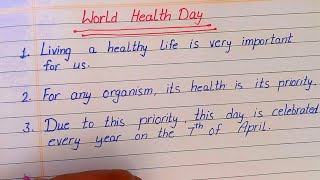 World Health Day
1. Living a healthy life is very important
for us.
2. For any organism, its health is its priority.
3. Due to this priority, this day is celebrated
every year on the 7th of April.